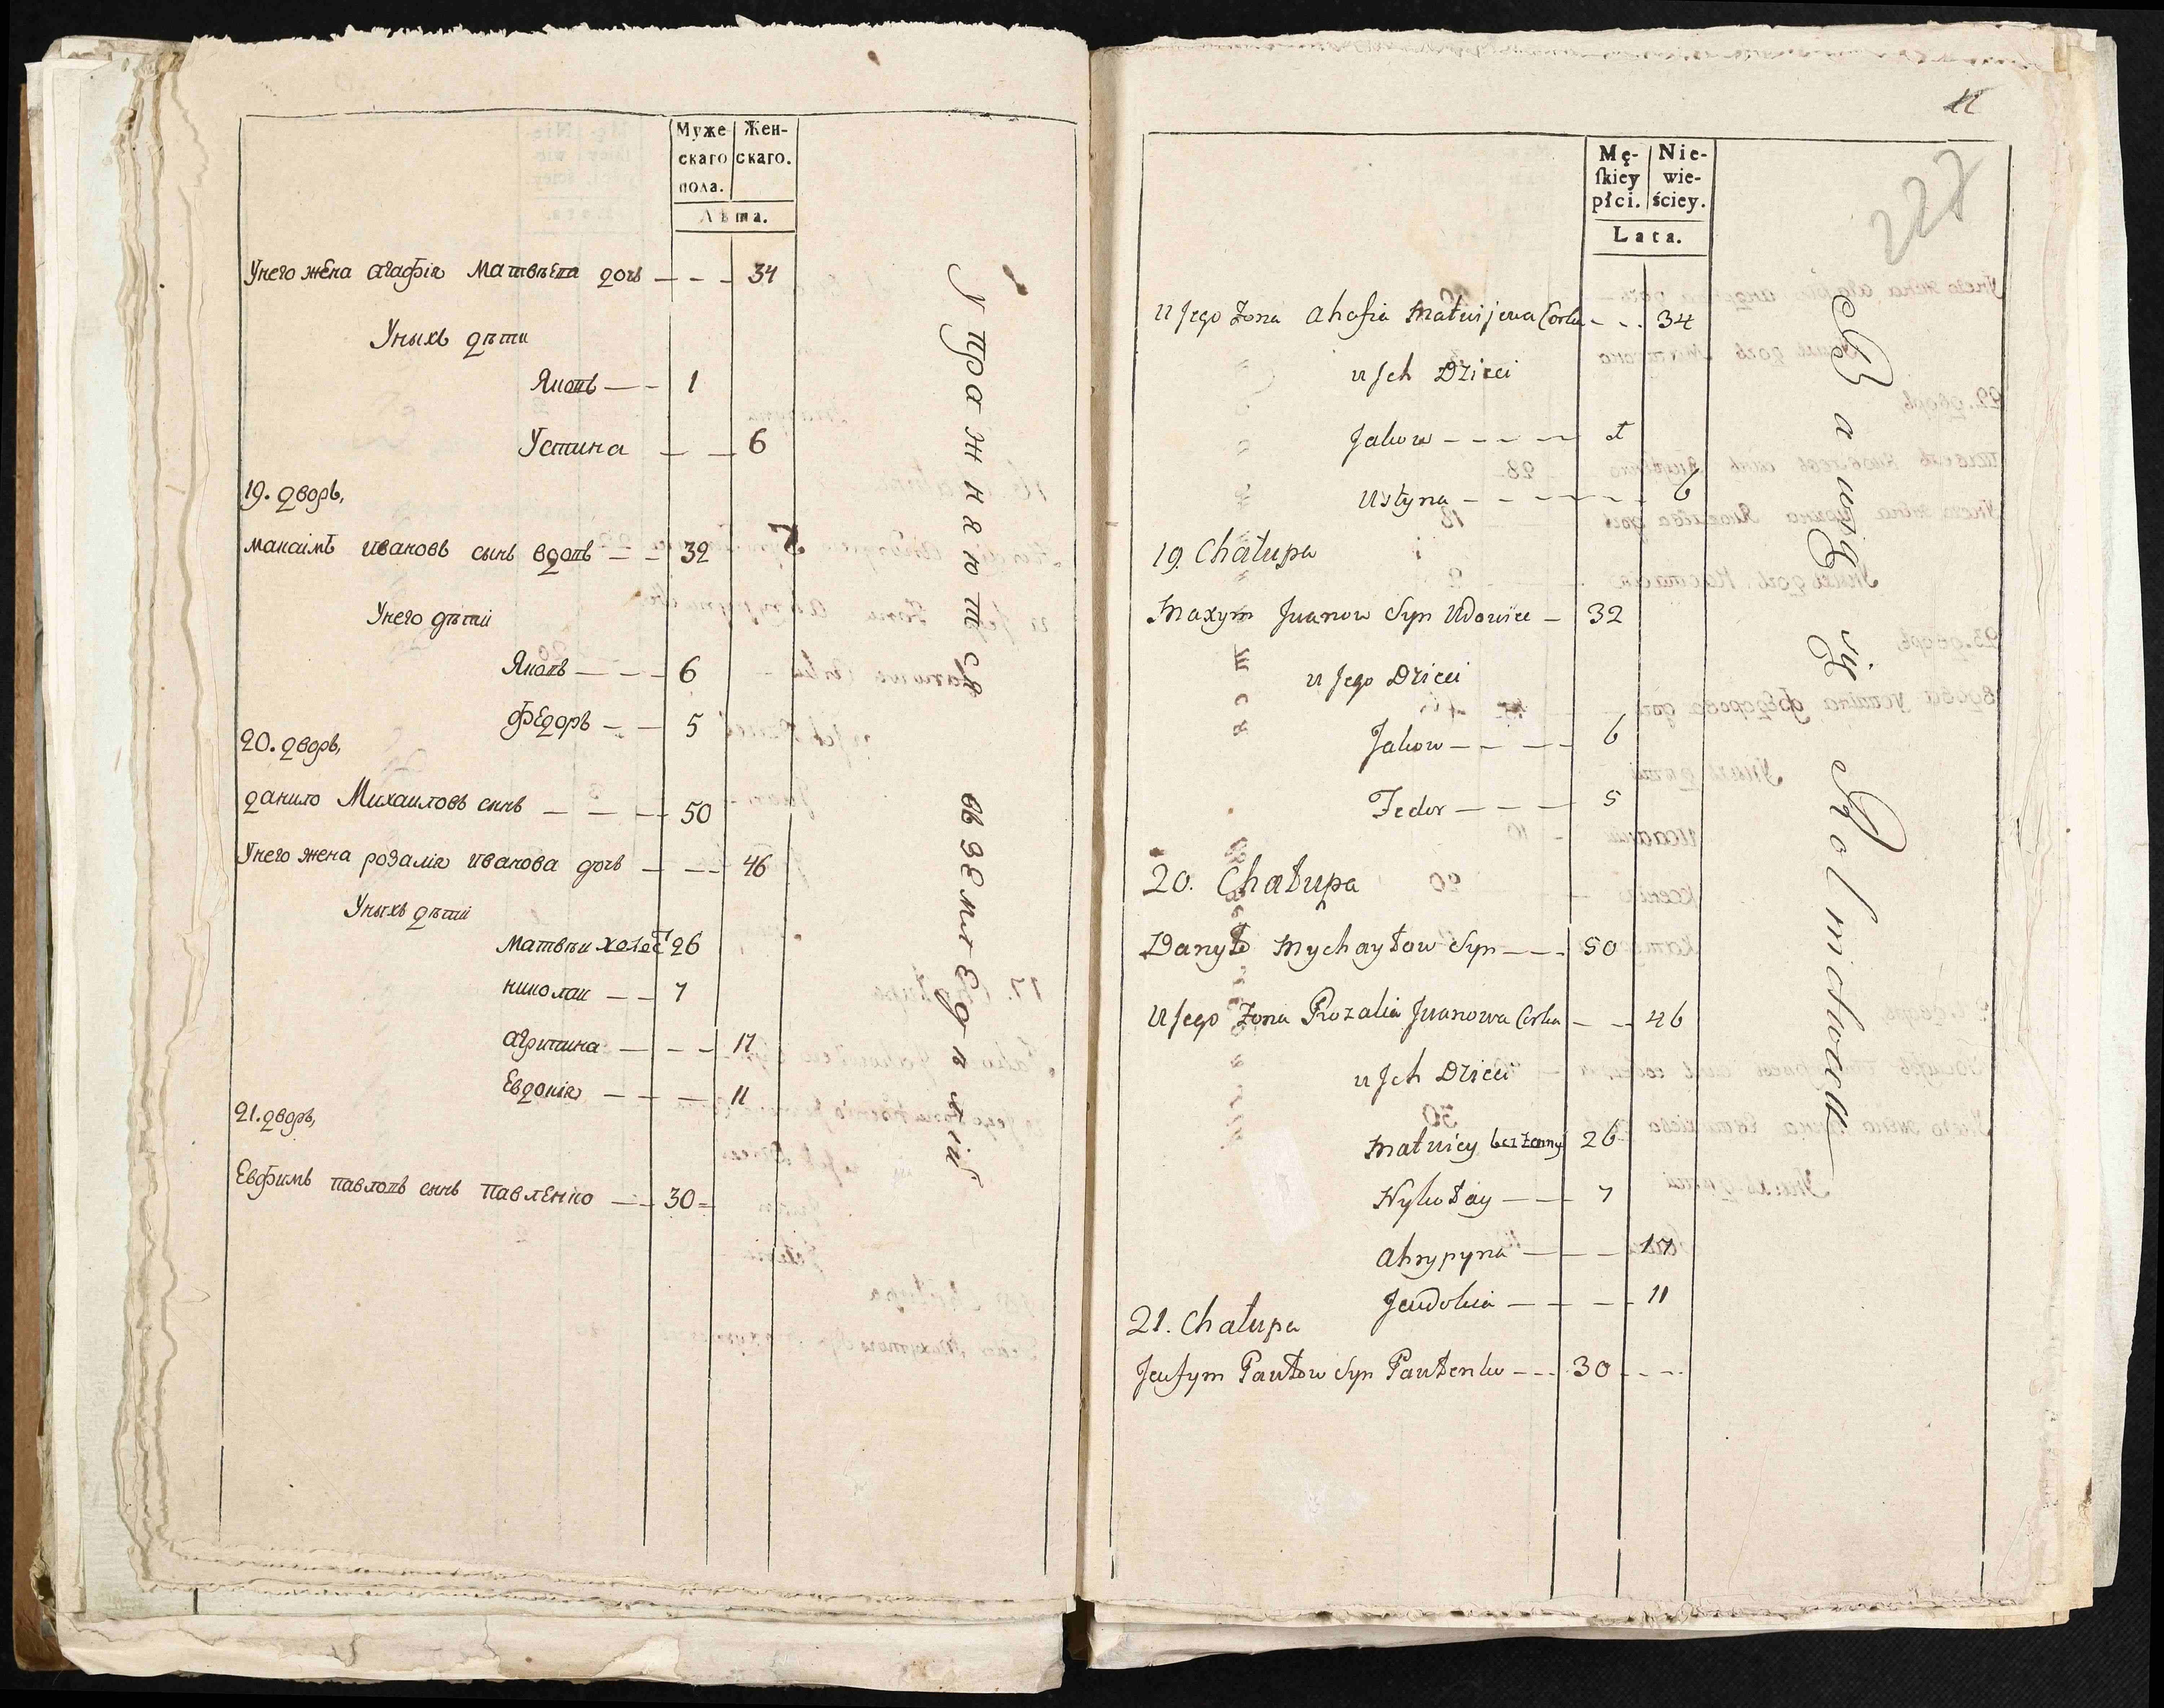 Муже Жен-
скаго скаго.
пола.
Лѣта.
Унего жена агафія Матвѣева дочь — — — 34
Уныхъ дѣти
Яковъ — — 1
Устина — — 6
19. дворъ,
максімъ ивановъ сынъ вдовъ — — 32
Унего дѣтии
Яковъ — — — 6
Федоръ — — 5
20. дворъ,
данило Михаиловъ сынъ — — — 50
Унего жена розалія иванова дочь — — — 46
Уныхъ дѣтии
Матвѣи холост 26
николаи — — 7
агрипина — — — 17
Евдокія — — — 11
21. дворъ,
Евфимъ павловъ сынъ Павленко — — 30 =
Упражнаются
вземледѣлій
11
227
Mę- Nie-
skiey wie-
płci. ściey.
Lata.
U Jego Zona Ahafia Matwijewa Corka - - - 34
u Jch Dzieci
Jakow - - - - - 1
Ustyna - - - - - - - 6
19. Chałupa
Maxym Jwanow Syn Udowiec — 32
u Jego Dzieci
Jakow — — — — 6
Fedor — — — 5
20. Chałupa
Danyło Mychayłow Syn — — — 50
U Jego Zona Rozalia Jwanowa Corka — — 46
u Jch Dzieci
Matwiey bezżenny 26
Nykołay — — 7
Ahrypyna — — — 17
Jewdokia — — — — 11
21. Chałupa
Jewfym Pawłow Syn Pawłenko — - - 30 - - - -
Bawią się Rolnictwem